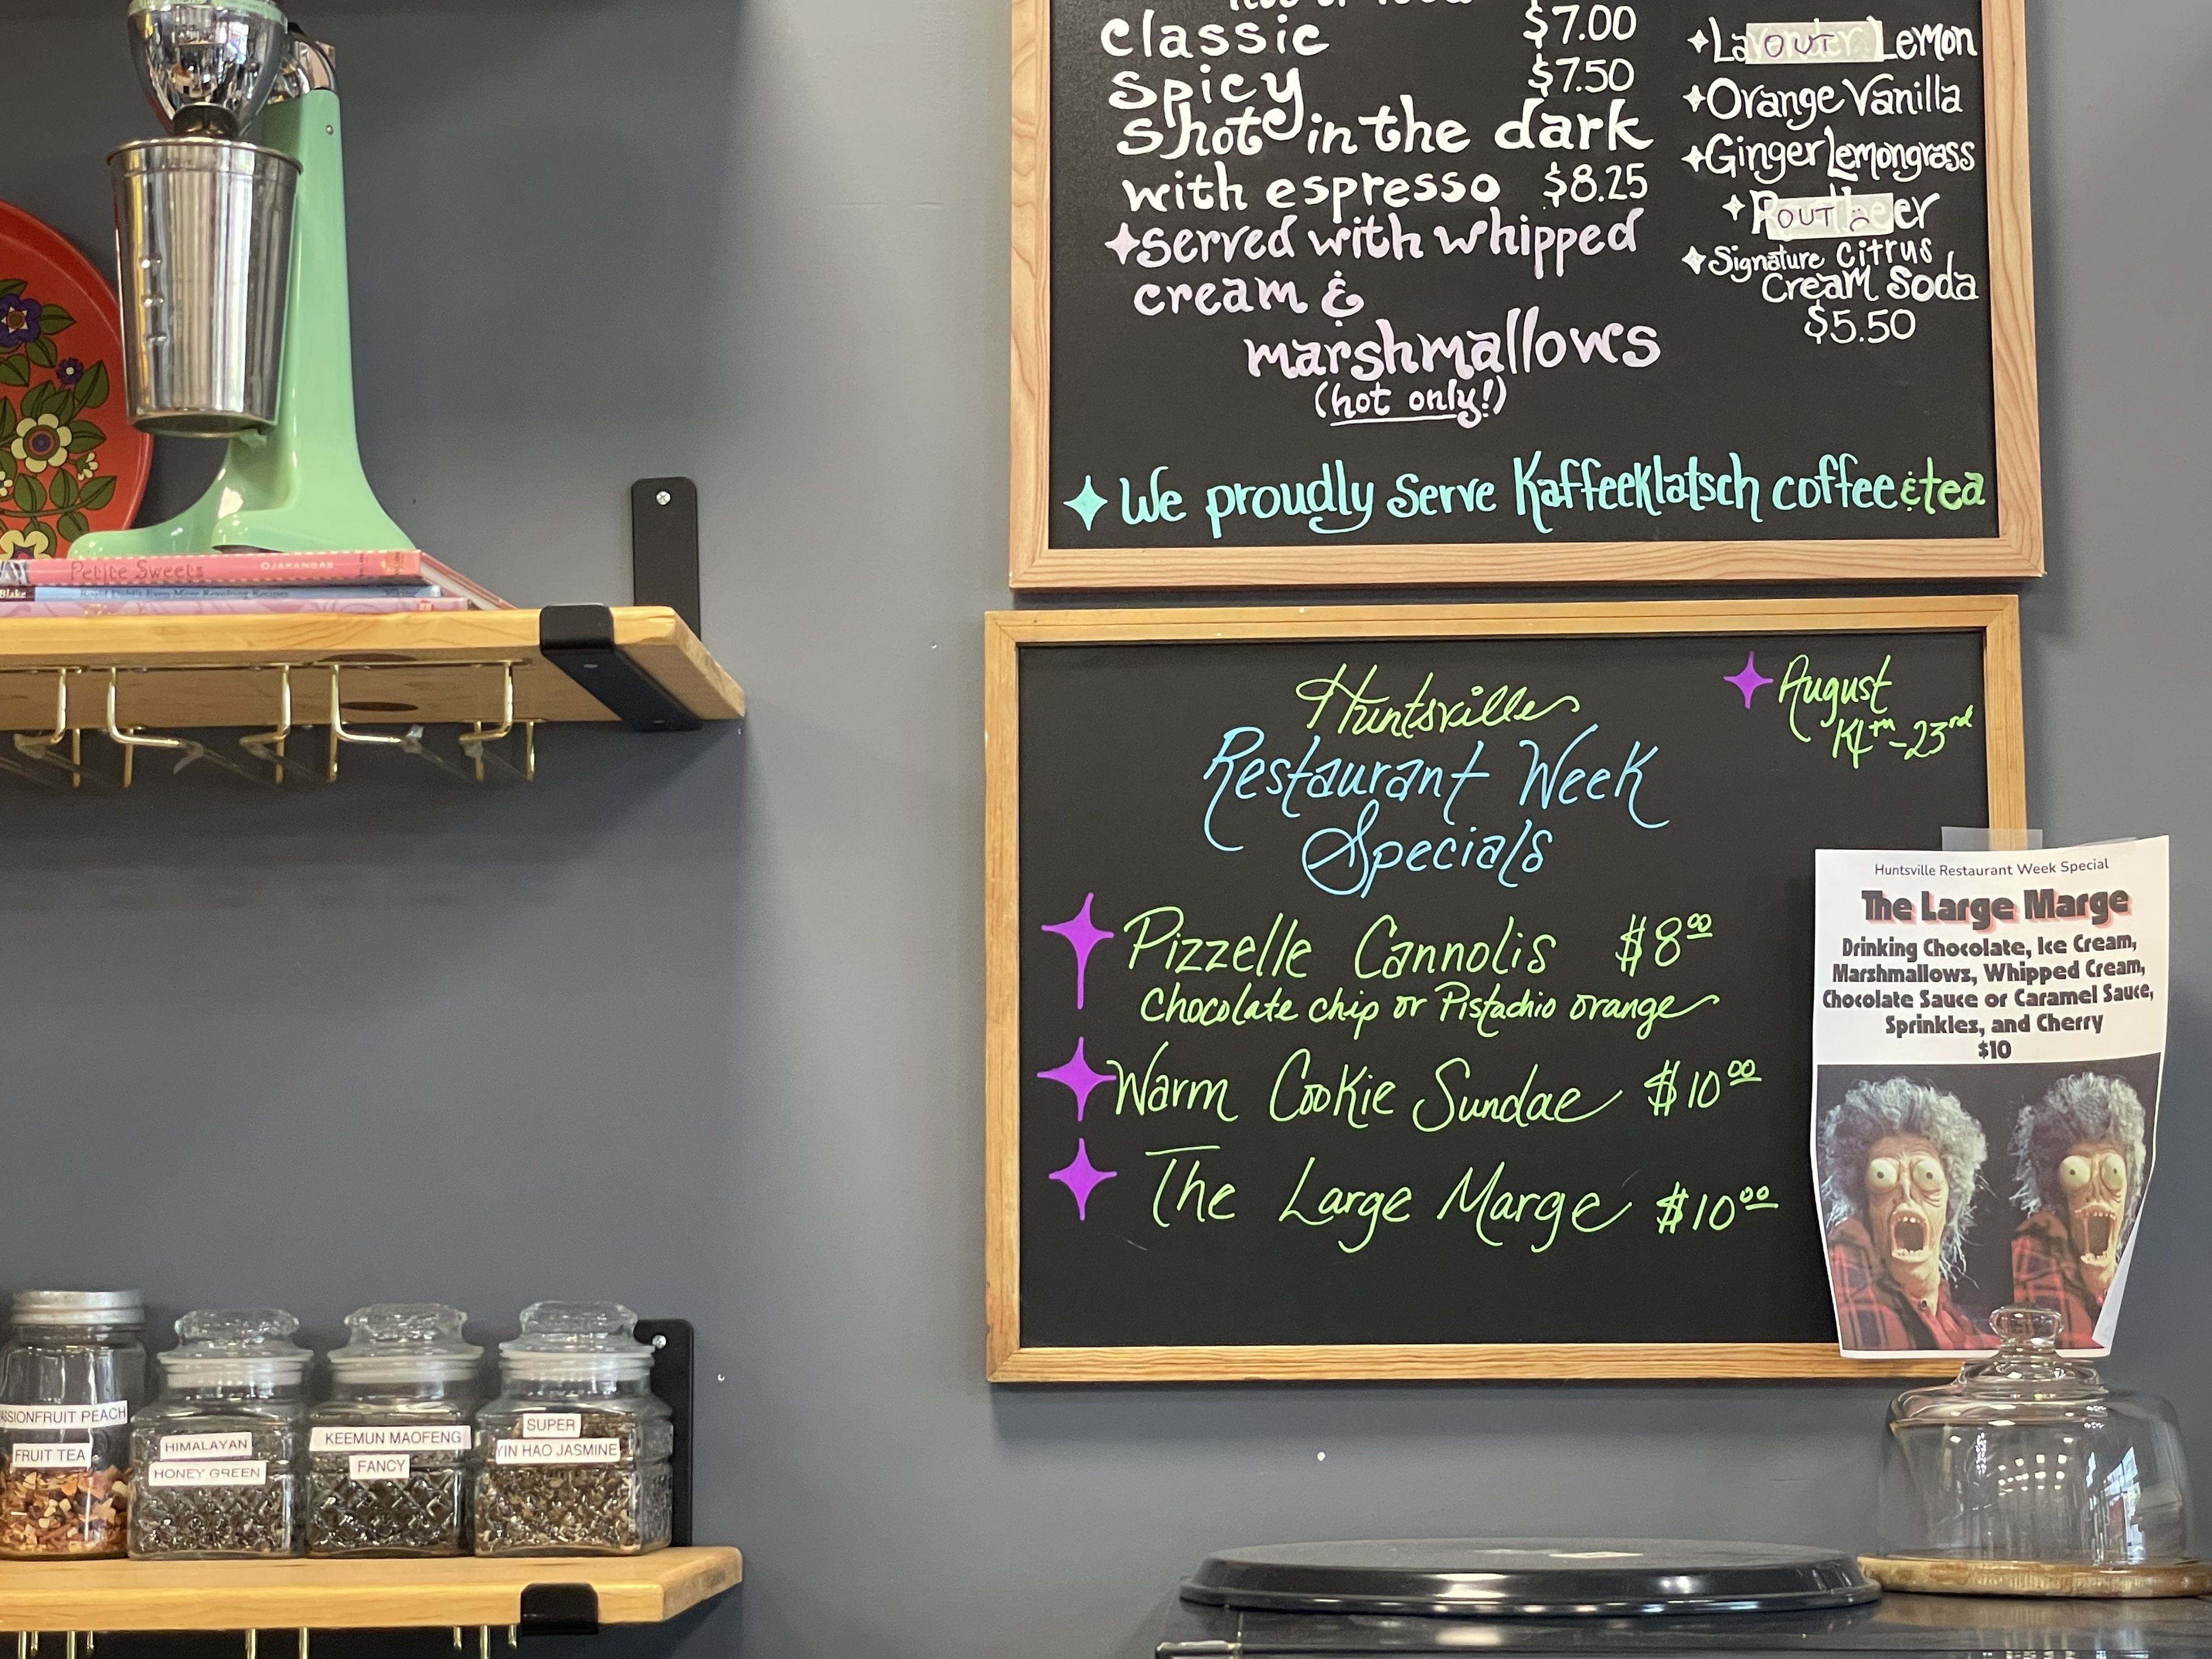 classic $7.00
spicy $7.50
shot in the dark
with espresso $8.25
served with whipped
cream &
marshmallows
(hot only!)
OUT Lemon
Orange Vanilla
Ginger Lemongrass
OUT
Signature Citrus
Cream Soda
$5.50
We proudly serve Kaffeeklatsch coffee & tea
Huntsville
Restaurant Week
Specials
August
14th-23rd
Pizzelle Cannolis $8.00
Chocolate chip or Pistachio orange
Warm Cookie Sundae $10.00
The Large Marge $10.00
Huntsville Restaurant Week Special
The Large Marge
Drinking Chocolate, Ice Cream,
Marshmallows, Whipped Cream,
Chocolate Sauce or Caramel Sauce,
Sprinkles, and Cherry
$10
Petite Sweets OJAKANGAS
Blake
ASSIONFRUIT PEACH
FRUIT TEA
HIMALAYAN
HONEY GREEN
KEEMUN MAOFENG
FANCY
SUPER
YIN HAO JASMINE